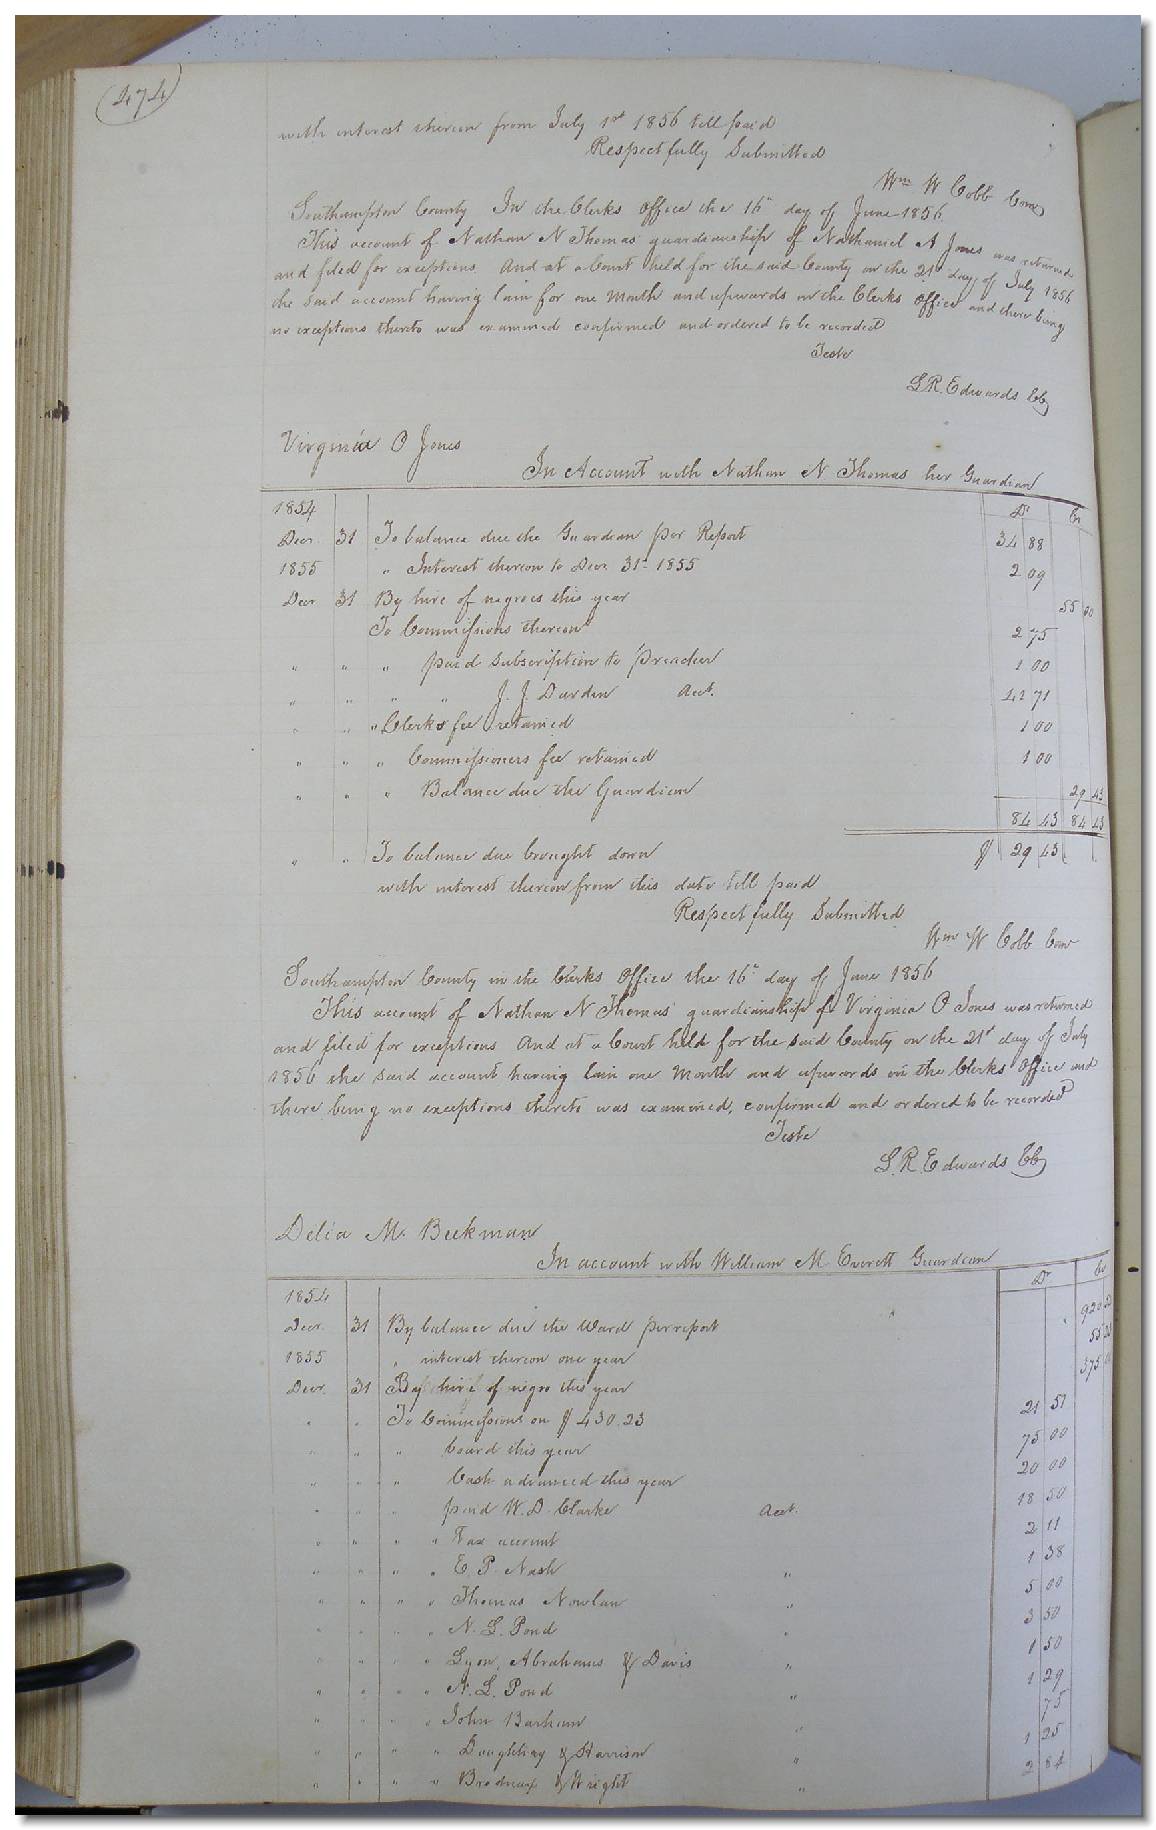 474
with interest thereon from July 1st 1856 till paid
Respectfully Submitted
Wm W Cobb Com
Southampton County In the Clerks Office the 16th day of June 1856
This account of Nathan N Thomas' guardianship of Nathaniel A Jones was returned
and filed for exceptions And at a Court held for the said County on the 21st day of July 1856
the said account having lain for one Month and upwards in the Clerks Office and there being
no exceptions thereto was examined confirmed and ordered to be recorded
Teste
L.R. Edwards CC
Virginia O Jones
In Account with Nathan N Thomas her Guardian
1854 Dr Cr
Decr 31 To balance due the Guardian per Report 34 88
1855 " Interest thereon to Decr 31st 1855 2 09
Decr 31 By hire of negroes this year 55 00
To Commissions thereon 2 75
" " " paid Subscription to Preacher 1 00
" " " " J. J. Darden Acct. 41 71
" " " Clerks fee retained 1 00
" " " Commissioners fee retained 1 00
" " " Balance due the Guardian 29 43
84 43 84 43
" " To balance due brought down $ 29 43
with interest thereon from this date till paid
Respectfully Submitted
Wm W Cobb Com
Southampton County in the Clerks Office the 16th day of June 1856
This account of Nathan N Thomas' guardianship of Virginia O Jones was returned
and filed for exceptions And at a Court held for the said County on the 21st day of July
1856 the said account having lain one Month and upwards in the Clerks' Office and
there being no exceptions thereto was examined, confirmed and ordered to be recorded
Teste
L.R. Edwards CC
Delia M. Beekman
In account with William M Everett Guardian
1854 Dr Cr
Decr. 31 By balance due the Ward per report 920
1855 " interest thereon one year 55
Decr. 31 By hire of negro this year 375
" " To Commissions on $ 430.23 21 51
" " " board this year 75 00
" " " Cash advanced this year 20 00
" " " paid W. D. Clarke Acct. 18 50
" " " " Tax account 2 11
" " " " E. P. Nash " 1 38
" " " " Thomas Nowlan " 5 00
" " " " N. L. Pond " 3 50
" " " " Lyon, Abrahams & Davis " 1 50
" " " " N. L. Pond " 1 29
" " " " John Barham " 75
" " " " Doughtray & Harrison " 1 25
" " " " Brodnax & Wright " 2 84